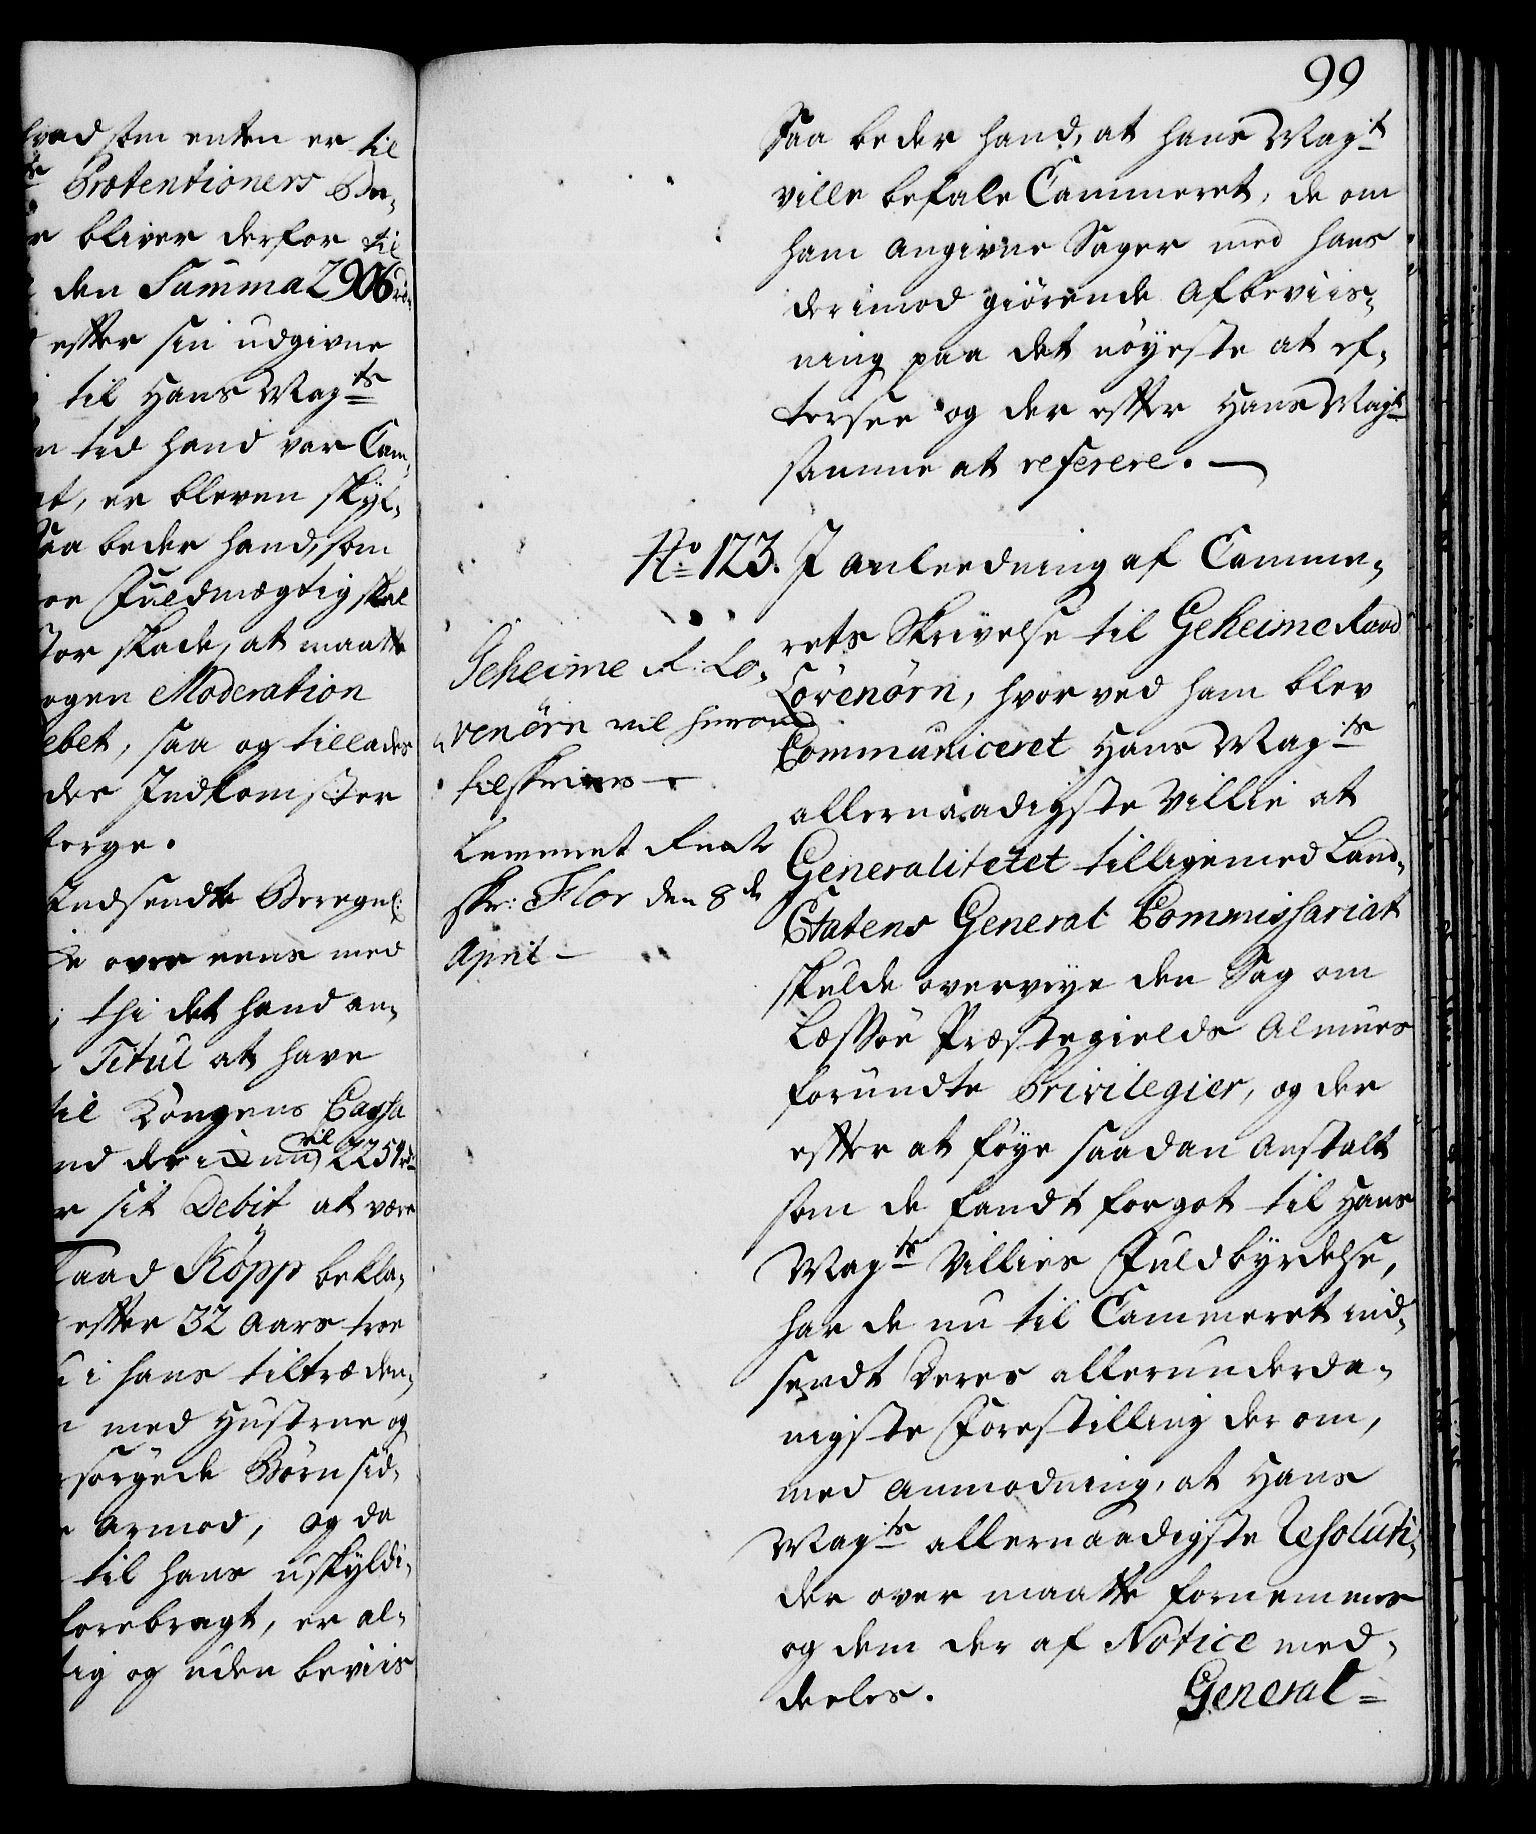 hvad som enten er til
Prætentioners Be-
bliver derfor til
den Summa 2906 rd.
efter sin udgivne
til Hans May:ts
tid hand var Cam-
at, er bleven skyl-
Saa beder hand, som
Fuldmægtig skal
stor skade, at maatte
ogen Moderation
ebet, saa og tillades
der Indkomster
sorge.
Indsendte Beregn:
over eens med
thi det hand an-
Titul at have
til Kongens Cassa
nd der i nu til 2251 rd
sit Debit at være
Raad Köpp bekla-
efter 32 Aars troe
i hans tiltræden-
med Hustrue og
sörgede Börn sid-
Armod, og da
til hans uskyldi-
forebragt, er al-
tig og uden beviis
99
Saa beder hand, at Hans May:t
ville befale Cammeret, de om
ham angivne Sager med hans
derimod giörende Afbeviis-
ning paa det nöyeste at ef-
tersee og der efter Hans May:t
samme at referere. —
No: 123. I anleedning af Camme-
rets Skrivelse til Geheime Raad
Lövenörn, hvorved ham blev
Communiceret Hans May:ts
allernaadigste Villie at
Generalitetet tilligemed Land-
Etatens General Commissariat
skulde overveye den Sag om
Læssöe Præstegields Almues
forundte Privilegier, og der
efter at föye saadan Anstalt
som de fandt forgot til Hans
May:ts Villies Fuldbyrdelse,
har de nu til Cammeret ind-
sendt deres allerunderda-
nigste Forestilling der om,
med Anmodning, at Hans
May:ts allernaadigste Resoluti-
der over maatte fornemmes
og dem der af Notice med-
deeles.
General=
Geheime R: Lö-
venörn vil herom
tilskrives —
Leveret Rent
skr: Flor den 8de
April —